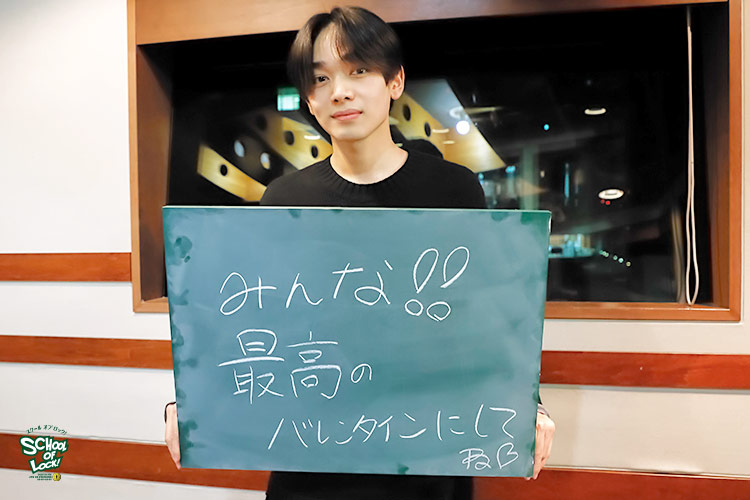 みんな!!
最高の
バレンタインにして
ね♡
スクール オブ ロック!
SCHOOL
OF
LOCK!